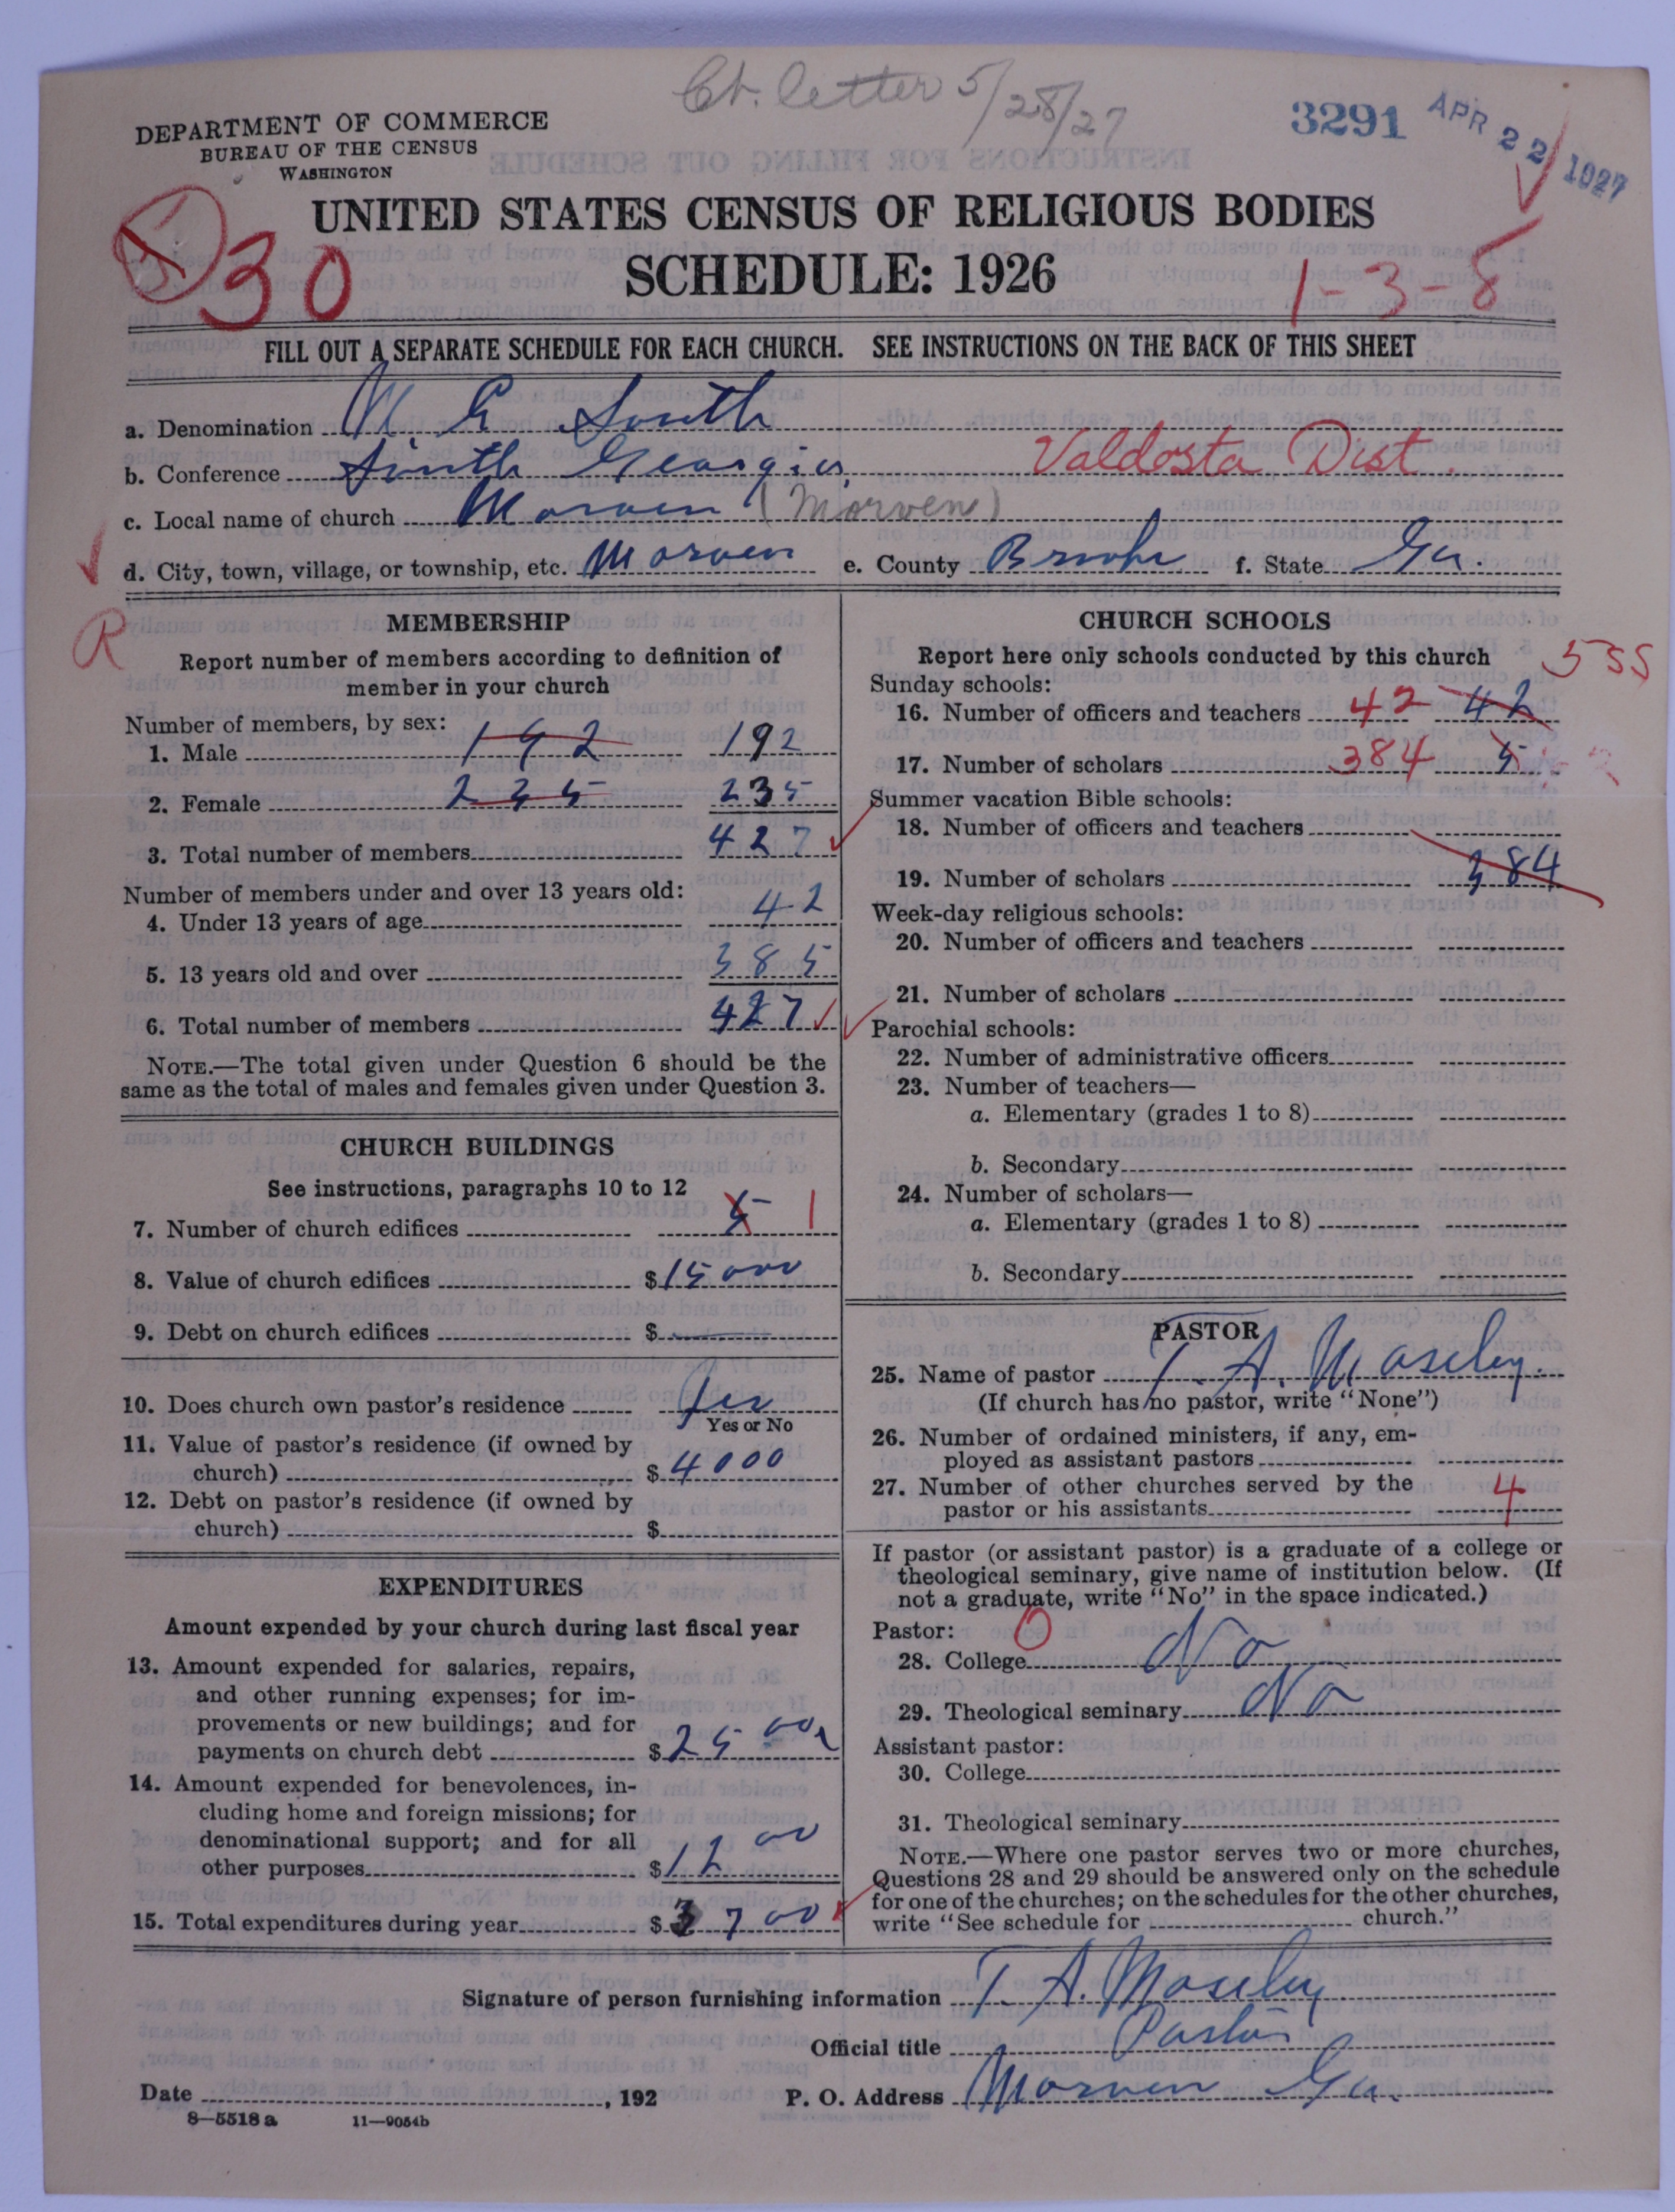 Ct. letter 5/28/27
3291 APR 22 1927
DEPARTMENT OF COMMERCE
BUREAU OF THE CENSUS
WASHINGTON
UNITED STATES CENSUS OF RELIGIOUS BODIES
30 SCHEDULE: 1926 1-3-8
FILL OUT A SEPARATE SCHEDULE FOR EACH CHURCH. SEE INSTRUCTIONS ON THE BACK OF THIS SHEET
a. Denomination M E South
b. Conference South Georgia, Valdosta Dist.
c. Local name of church Morven (Morven)
d. City, town, village, or township, etc. Morven e. County Brooks f. State Ga.
R
MEMBERSHIP
Report number of members according to definition of
member in your church
Number of members, by sex:
1. Male 192 192
2. Female 235 235
3. Total number of members 427
Number of members under and over 13 years old:
4. Under 13 years of age 42
5. 13 years old and over 385
6. Total number of members 427
NOTE.—The total given under Question 6 should be the
same as the total of males and females given under Question 3.
CHURCH BUILDINGS
See instructions, paragraphs 10 to 12
7. Number of church edifices 5 1
8. Value of church edifices $15000
9. Debt on church edifices $
10. Does church own pastor's residence Yes
Yes or No
11. Value of pastor's residence (if owned by
church) $4000
12. Debt on pastor's residence (if owned by
church) $
EXPENDITURES
Amount expended by your church during last fiscal year
13. Amount expended for salaries, repairs,
and other running expenses; for im-
provements or new buildings; and for
payments on church debt $2500
14. Amount expended for benevolences, in-
cluding home and foreign missions; for
denominational support; and for all
other purposes $1200
15. Total expenditures during year $3700
CHURCH SCHOOLS
Report here only schools conducted by this church
5 SS
Sunday schools:
16. Number of officers and teachers 42 42
17. Number of scholars 384 5
Summer vacation Bible schools:
18. Number of officers and teachers
19. Number of scholars 384
Week-day religious schools:
20. Number of officers and teachers
21. Number of scholars
Parochial schools:
22. Number of administrative officers
23. Number of teachers—
a. Elementary (grades 1 to 8)
b. Secondary
24. Number of scholars—
a. Elementary (grades 1 to 8)
b. Secondary
PASTOR
25. Name of pastor T. A. Moseley.
(If church has no pastor, write "None")
26. Number of ordained ministers, if any, em-
ployed as assistant pastors
27. Number of other churches served by the
pastor or his assistants 4
If pastor (or assistant pastor) is a graduate of a college or
theological seminary, give name of institution below. (If
not a graduate, write "No" in the space indicated.)
Pastor: 0
28. College No
29. Theological seminary No
Assistant pastor:
30. College
31. Theological seminary
NOTE.—Where one pastor serves two or more churches,
Questions 28 and 29 should be answered only on the schedule
for one of the churches; on the schedules for the other churches,
write "See schedule for church."
Signature of person furnishing information T. A. Moseley
Official title Pastor
Date , 192 P. O. Address Morven Ga.
8—5518 a 11—9054b